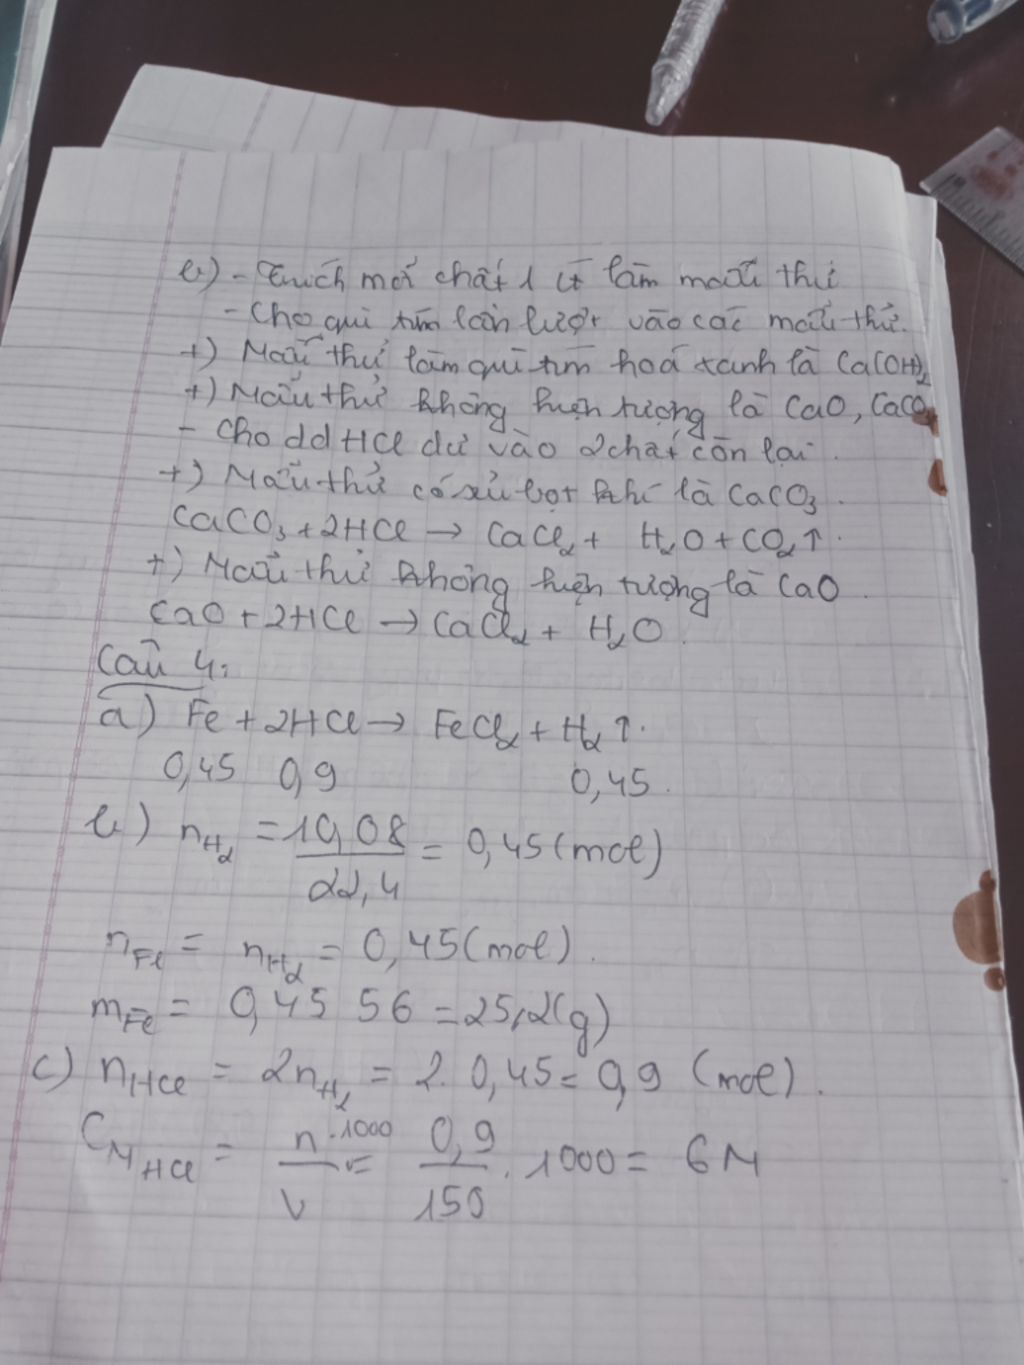 b) - Trích mỗi chất 1 ít làm mẫu thử
- Cho quì tím lần lượt vào các mẫu thử.
+) Mẫu thử làm quì tím hoá xanh là Ca(OH)2
+) Mẫu thử không hiện tượng là CaO, CaCO3
- Cho dd HCl dư vào 2 chất còn lại.
+) Mẫu thử có sủi bọt khí là CaCO3.
CaCO3 + 2HCl → CaCl2 + H2O + CO2↑.
+) Mẫu thử không hiện tượng là CaO.
CaO + 2HCl → CaCl2 + H2O.
Câu 4:
a) Fe + 2HCl → FeCl2 + H2↑.
0,45 0,9 0,45.
b) nH2 = 10,08/22,4 = 0,45 (mol)
nFe = nH2 = 0,45 (mol).
mFe = 0,45 56 = 25,2 (g)
c) nHCl = 2nH2 = 2. 0,45 = 0,9 (mol).
CM HCl = n.1000/V = 0,9/150 . 1000 = 6M